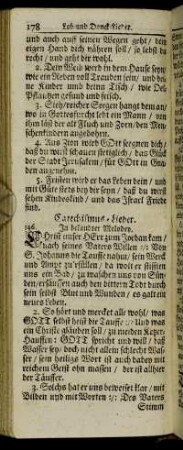 178 Lob- und Danck-Lieder.
und auch auß seinen Wegen geht/ dein
eigen Hand dich nähren soll / so lebst du
recht/ und geht dir wohl.
2. Dein Weib wird in dem Hause seyn/
wie ein Reben voll Trauben fein/ und dei-
ne Kinder umb deinen Tisch/ wie Oel-
Pflantzen gesund und frisch.
3. Sieh/ reicher Segen hangt dem an/
wo in Gottesfurcht lebt ein Mann / von
ihm läst der alt Fluch und Zorn/den Men-
schenkindern angebohrn.
4. Aus Zion wird GOtt segnen dich/
daß du wirst schauen stetiglich / das Glück
der Stadt Jerusalem / für GOtt in Gna-
den angenehm.
5. Fristen wird er das Leben dein / und
mit Güte stets bey dir seyn/ daß du wirst
sehen Kindeskind / und das Israel Friede
find.
Catechismus-Lieder.
146. In bekandter Melodey.
CHrist unser HErr zum Jordan kam/
nach seines Vaters Willen :/: Von
S. Johannes die Tauffe nahm/ sein Werck
und Ampt zu'rfüllen / da wolt er stifften
uns ein Bad / zu waschen uns von Sün-
den/ersäuffen auch den bittern Todt durch
sein selbst Blut und Wunden / es galt ein
neues Leben.
2. So hört und mercket alle wohl / was
GOTT selbst heist die Tauffe :/: Und was
ein Christe gläuben soll / zu meiden Ketzer-
Hauffen : GOTT spricht und will / daß
Wasser sey/ doch nicht allein schlecht Was-
ser / sein heiligs Wort ist auch dabey mit
reichem Geist ohn massen / der ist allhier
der Täuffer.
3. Solchs hat er uns beweiset klar/ mit
Bilden und mit Worten :/: Des Vaters
Stimm